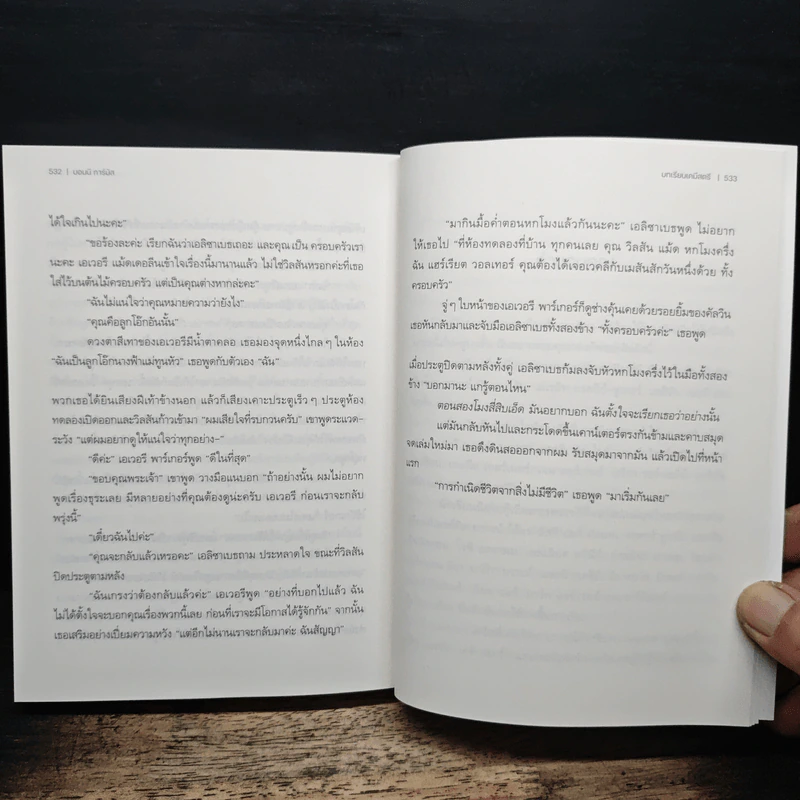 532 | บอนนี การ์มัส
ได้ใจเกินไปนะคะ"
"ขอร้องละค่ะ เรียกฉันว่าเอลิซาเบธเถอะ และคุณ เป็น ครอบครัวเรา
นะคะ เอเวอรี แม้ดเดอลีนเข้าใจเรื่องนี้มานานแล้ว ไม่ใช่วิลสันหรอกค่ะที่เธอ
ใส่ไว้บนต้นไม้ครอบครัว แต่เป็นคุณต่างหากล่ะคะ"
"ฉันไม่แน่ใจว่าคุณหมายความว่ายังไง"
"คุณคือลูกโอ๊กอันนั้น"
ดวงตาสีเทาของเอเวอรีมีน้ำตาคลอ เธอมองจุดหนึ่งไกลๆ ในห้อง
"ฉันเป็นลูกโอ๊กนางฟ้าแม่ทูนหัว" เธอพูดกับตัวเอง "ฉัน"
พวกเธอได้ยินเสียงฝีเท้าข้างนอก แล้วก็เสียงเคาะประตูเร็วๆ ประตูห้อง
ทดลองเปิดออกและวิลสันก้าวเข้ามา "ผมเสียใจที่รบกวนครับ" เขาพูดระแวด-
ระวัง "แต่ผมอยากดูให้แน่ใจว่าทุกอย่าง–"
"ดีค่ะ" เอเวอรี พาร์กเกอร์พูด "ดีในที่สุด"
"ขอบคุณพระเจ้า" เขาพูด วางมือแนบอก "ถ้าอย่างนั้น ผมไม่อยาก
พูดเรื่องธุระเลย มีหลายอย่างที่คุณต้องดูน่ะครับ เอเวอรี ก่อนเราจะกลับ
พรุ่งนี้"
"เดี๋ยวฉันไปค่ะ"
"คุณจะกลับแล้วเหรอคะ" เอลิซาเบธถาม ประหลาดใจ ขณะที่วิลสัน
ปิดประตูตามหลัง
"ฉันเกรงว่าต้องกลับแล้วค่ะ" เอเวอรีพูด "อย่างที่บอกไปแล้ว ฉัน
ไม่ได้ตั้งใจจะบอกคุณเรื่องพวกนี้เลย ก่อนที่เราจะมีโอกาสได้รู้จักกัน" จากนั้น
เธอเสริมอย่างเปี่ยมความหวัง "แต่อีกไม่นานเราจะกลับมาค่ะ ฉันสัญญา"
บทเรียนเคมีสตรี | 533
"มากินมื้อค่ำตอนหกโมงแล้วกันนะคะ" เอลิซาเบธพูด ไม่อยาก
ให้เธอไป "ที่ห้องทดลองที่บ้าน ทุกคนเลย คุณ วิลสัน แม้ด หกโมงครึ่ง
ฉัน แฮร์เรียต วอลเทอร์ คุณต้องได้เจอเวคลีกับเมสันสักวันหนึ่งด้วย ทั้ง
ครอบครัว"
จู่ๆ ใบหน้าของเอเวอรี พาร์กเกอร์ก็ดูช่างคุ้นเคยด้วยรอยยิ้มของคัลวิน
เธอหันกลับมาและจับมือเอลิซาเบธทั้งสองข้าง "ทั้งครอบครัวค่ะ" เธอพูด
เมื่อประตูปิดตามหลังทั้งคู่ เอลิซาเบธก้มลงจับหัวหกโมงครึ่งไว้ในมือทั้งสอง
ข้าง "บอกมานะ แกรู้ตอนไหน"
ตอนสองโมงสี่สิบเอ็ด มันอยากบอก ฉันตั้งใจจะเรียกเธอว่าอย่างนั้น
แต่มันกลับหันไปและกระโดดขึ้นเคาน์เตอร์ตรงกันข้ามและคาบสมุด
จดเล่มใหม่มา เธอดึงดินสอออกจากผม รับสมุดมาจากมัน แล้วเปิดไปที่หน้า
แรก
"การกำเนิดชีวิตจากสิ่งไม่มีชีวิต" เธอพูด "มาเริ่มกันเลย"